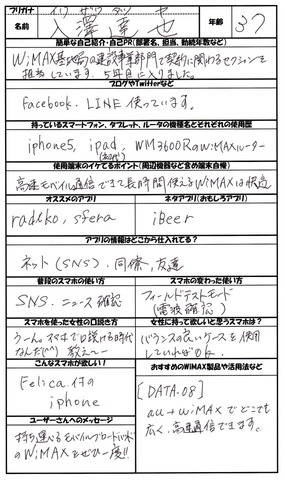 フリガナ イワ ザワ タツ ヤ
名前 入澤達也 年齢 37
簡単な自己紹介・自己PR(部署名、担当、勤続年数など)
WiMAX基地局の建設事業部門で契約に関わるセクションを
担当しています。5年目に入りました。
ブログやTwitterなど
Facebook. LINE 使っています。
持っているスマートフォン、タブレット、ルータの機種名とそれぞれの使用歴
iphone5, ipad, WM3600R WiMAXルーター
(初代)
使用端末のイケてるポイント(周辺機器など含め端末自慢)
高速モバイル通信できて長時間使えるWiMAXは快適
オススメのアプリ
radiko, sfera
ネタアプリ(おもしろアプリ)
iBeer
アプリの情報はどこから仕入れてる?
ネット(SNS). 同僚, 友達
普段のスマホの使い方
SNS. ニュース確認
スマホの変わった使い方
フィールドテストモード
(電波確認)
スマホを使った女性の口説き方
うーん。スマホで口説ける時代
なんだ(^^) 教えて〜
女性に持って欲しいと思うスマホは?
バランスの良いケースを使用
していればOK.
こんなスマホが欲しい!
Felica付の
iphone
おすすめのWiMAX製品や活用法など
[DATA.08]
au+WiMAXでどこでも
広く、高速通信できます。
ユーザーさんへのメッセージ
持ち運べるモバイルブロードバンド
のWiMAXをぜひ一度!!